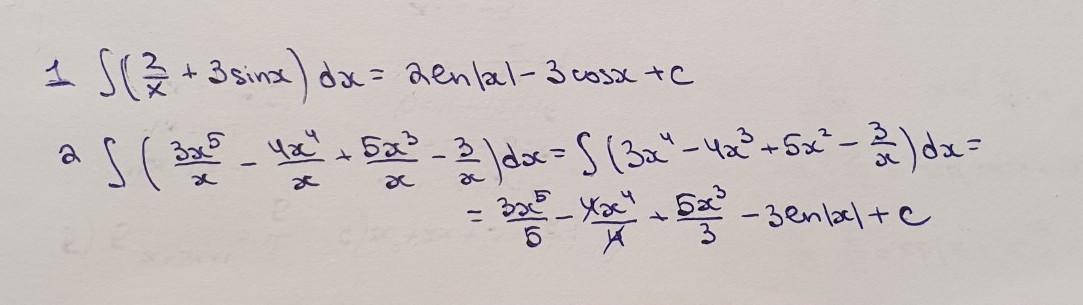 1 ∫(2/x + 3sinx) dx = 2ln|x| - 3cosx + c
2 ∫(3x⁵/x - 4x⁴/x + 5x³/x - 3/x)dx = ∫(3x⁴ - 4x³ + 5x² - 3/x)dx =
= 3x⁵/5 - 4x⁴/4 + 5x³/3 - 3ln|x| + c